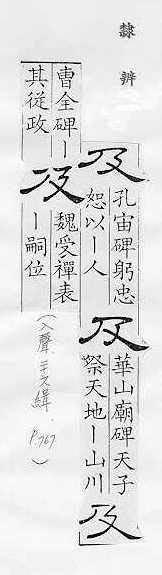 隸辨
及
孔宙碑躬忠
恕以丨人
及
華山廟碑天子
祭天地丨山川
及
曹全碑丨
其從政
及
魏受禪表
丨嗣位
(入聲 緝 P.767)